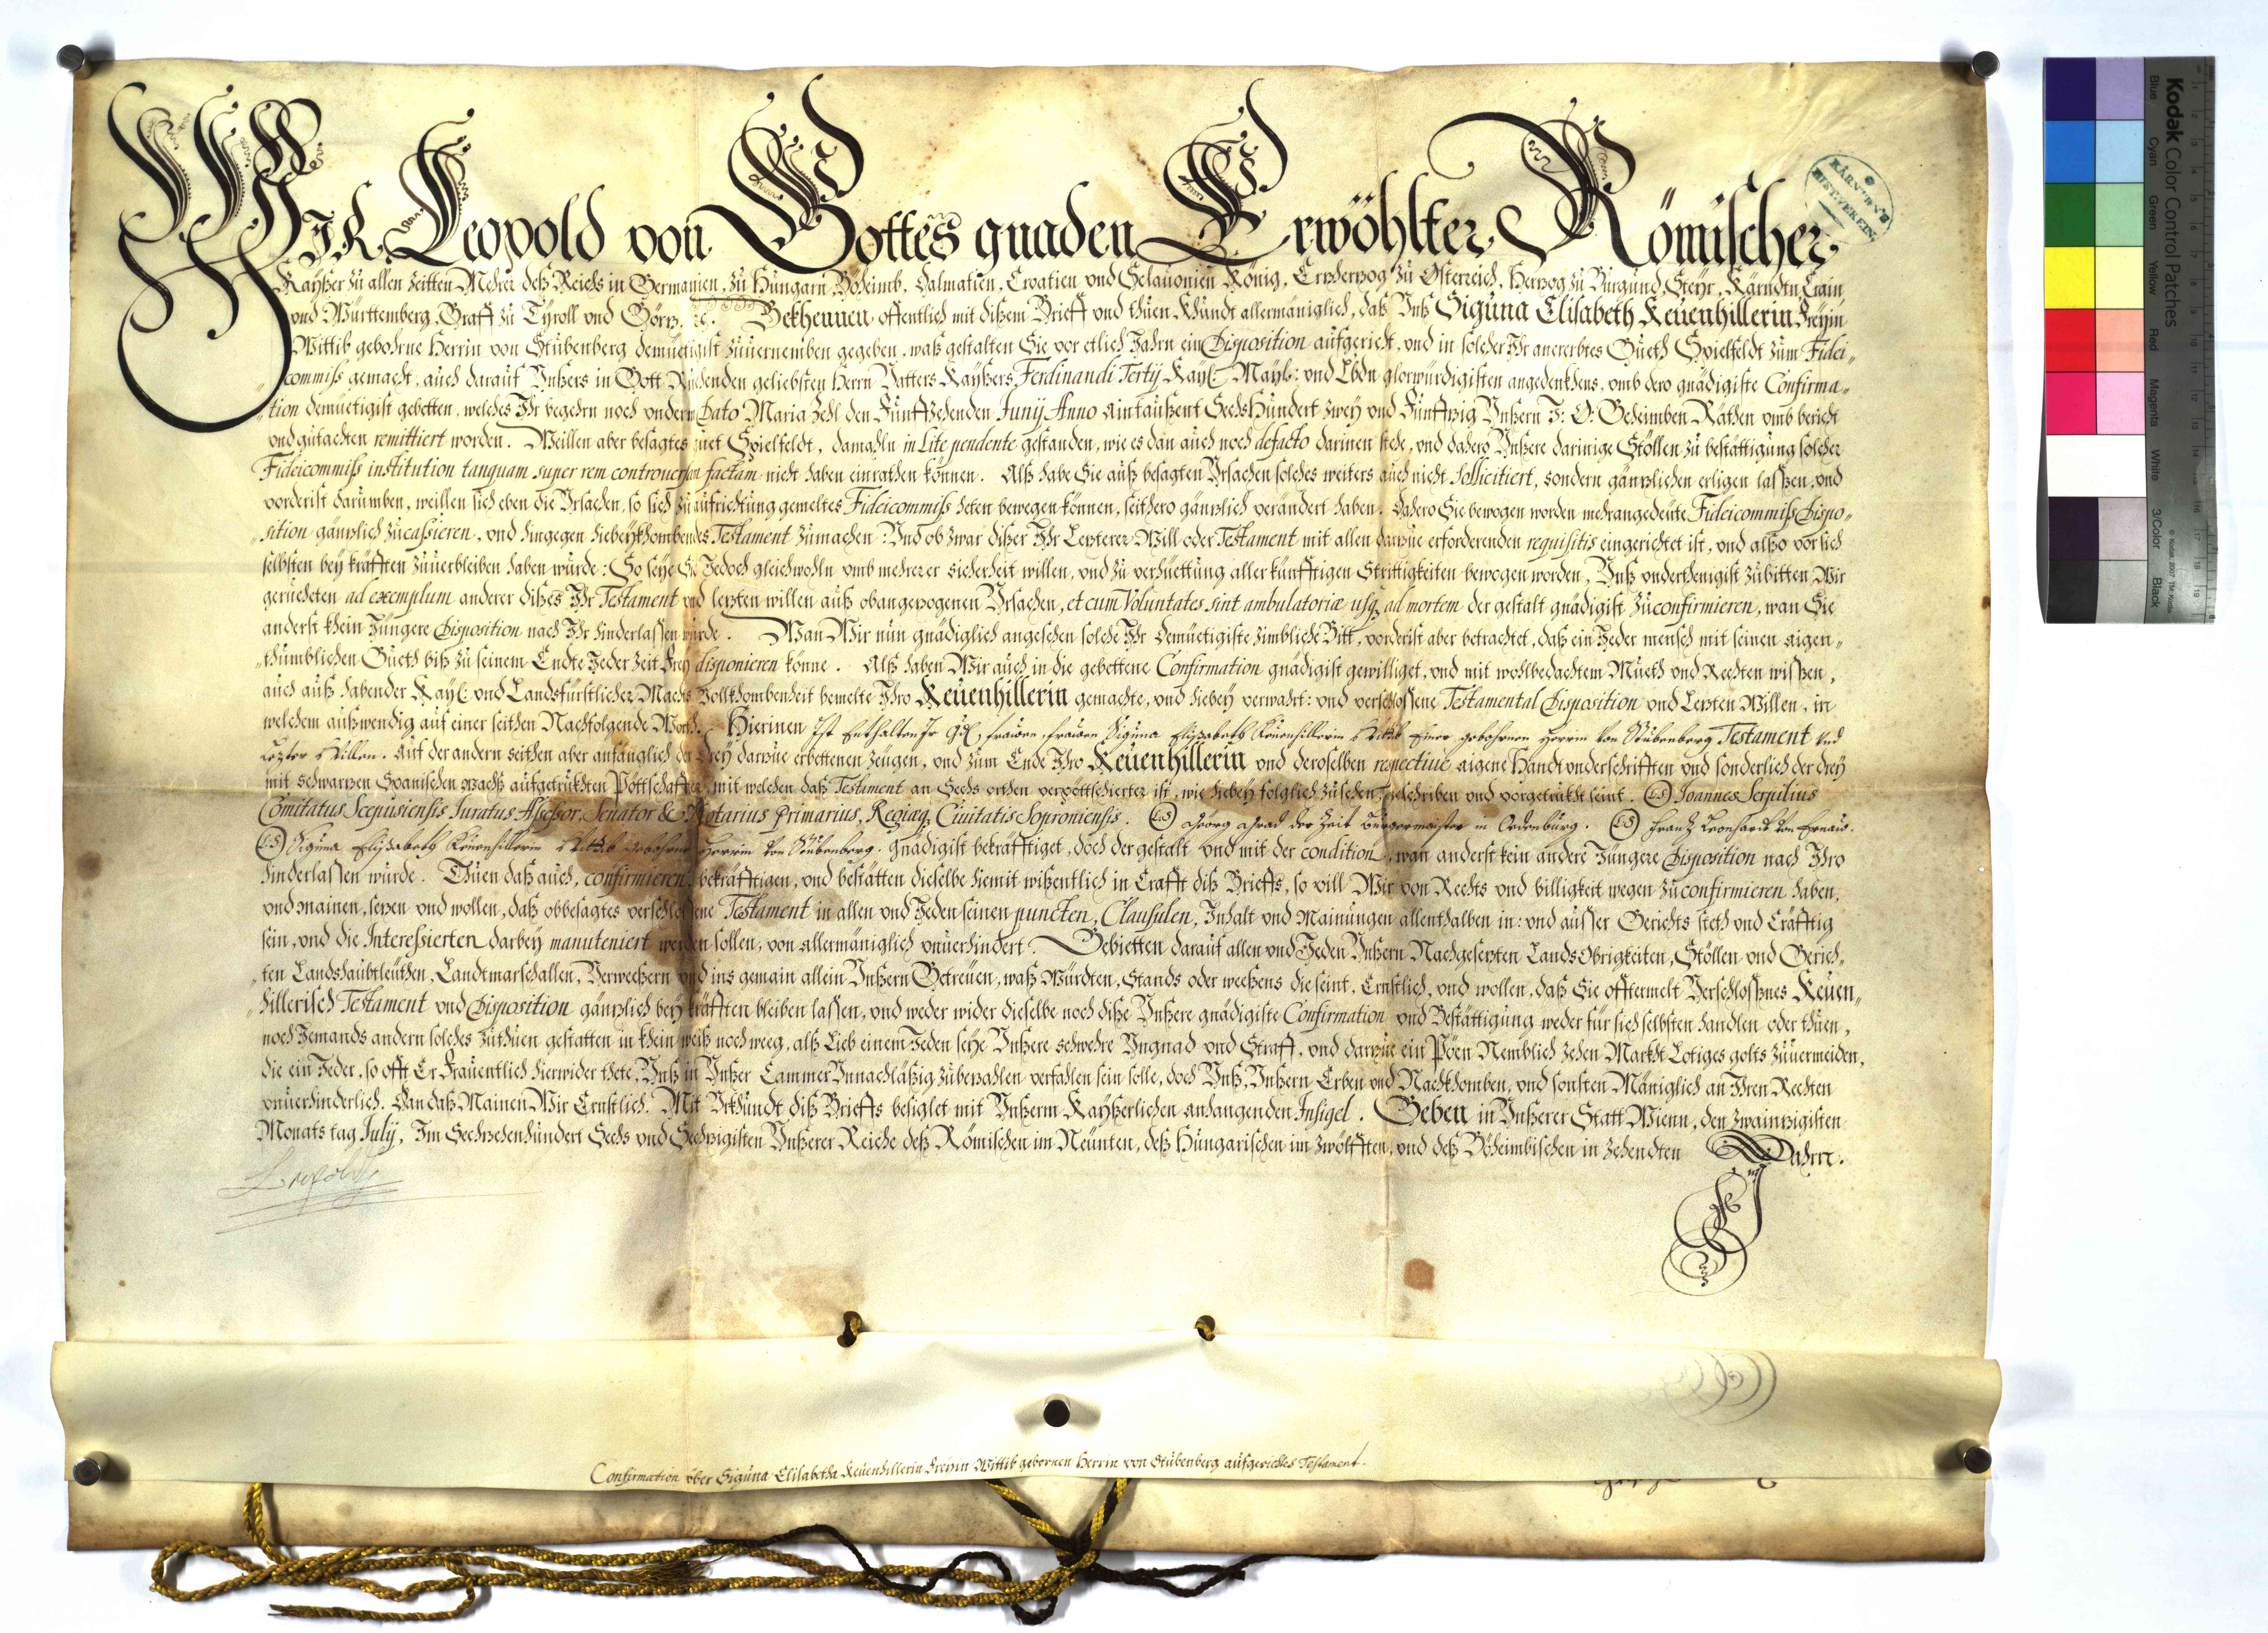 WIR Leopold von Gottes gnaden Erwöhlter Römischer
Kayßer zu allen zeitten Mehrer deß Reichs in Germanien, zu Hungarn Böheimb, Dalmatien, Croatien vnd Sclauonien König, Erzherzog zu Österreich, Herzog zu Burgund, Steyr, Kärndten Crain
vnd Württemberg, Graff zu Tyroll vnd Görz. Bekhennen offentlich mit dißem Brieff vnd thuen Khundt allermäniglich, daß Vnß Siguna Elisabeth Keuenhillerin Freyin
Wittib geborne Herrin von Stubenberg demüetigist zuuernemben gegeben, waß gestalten Sie vor etlich Jahrn ein Disposition aufgericht, und in solcher Ihr anererbtes Gueth Spielfeldt zum Fidei-
commiß gemacht, auch darauf Vnßers in Gott Ruehenden geliebsten Herrn Vatters Kayßers Ferdinandi Tertij Kayl: Mayl: und Lbdn glorwürdigisten angedenkhens, vmb dero gnädigiste Confirma-
tion demüetigist gebetten, welches Ihr begehrn noch vnderm Dato Maria Zehl den Fünffzehenden Junij Anno Aintaußent Sechs Hundert zwey vnd Fünffzig Vnßern I: O: Geheimben Räthen vmb bericht
vnd gutachten remittiert worden. Weillen aber besagtes guet Spielfeldt, damahln in Lite pendente gestanden, wie es dan auch noch defacto darinen stehe, vnd dahero Vnßere darinige Stöllen zu bestättigung solcher
Fideicommiß institution tanquam super rem controuersam factam nicht haben einrathen können. Alß habe Sie auß besagten Vrsachen solches weiters auch nicht sollicitiert, sondern gänzlichen erligen laßen, vnd
vorderist darumben, weillen sich eben die Vrsachen, so sich zu aufrichtung gemeltes Fideicommiß heten bewegen können, seithero gänzlich verändert haben. Dahero Sie bewogen worden mehrangedeüte Fideicommiß Dispo-
sition gänzlich zu cassieren, vnd hingegen hiebeykhombendes Testament zumachen: Vnd ob zwar dißer Ihr Lezterer Will oder Testament mit allen darzue erforderenden requisitis eingerichtet ist, vnd alßo vor sich
selbsten bey kräfften zuuerbleiben haben würde: So seye Sie Jedoch gleichwohln vmb mehrerer sicherheit willen, vnd zu verhüettung aller künfftigen Strittigkeiten bewogen worden, Vnß vnderthenigist zubitten, Wir
geruheten ad exemplum anderer dißes Ihr Testament vnd lezten willen auß obangezogenen Vrsachen, et cum Voluntates sint ambulatoriæ usq, ad mortem der gestalt gnädigist zu confirmieren, wan Sie
anderst khein Jüngere Disposition nach Ihr hinderlassen würde. Wan Wir nun gnädiglich angesehen solche Ihr demüetigiste zimbliche Bitt, vorderist aber betrachtet, daß ein Jeder mensch mit seinen aigen-
thumblichen Gueth biß zu seinem Endte Jeder Zeit Frey disponieren könne. Alß haben Wir auch in die gebettene Confirmation gnädigist gewilliget, vnd mit wohlbedachtem Mueth vnd Rechten wißen,
auch auß habender Kayl: vnd Landsfürstlicher Machts Vollkhombenheit bemelte Ihro Keuenhillerin gemachte, vnd hiebey verwahrt: vnd verschloßene Testamental Disposition vnd Lezten Willen, in
welchem außwendig auf einer seithen Nachfolgende Wort. Hierinen Ist Enthalten Frauen Siguna Elisabeth Keuenhillerin Wittib Einer gebohrnen Herrin von Stubenberg Testament vnd
Lezter Willen. Auf der andern seithen aber anfänglich der drey darzue erbettenen zeugen, vnd zum Ende Ihro Keuenhillerin vnd derselben respectiue aigene Handtvnderschrifften vnd sonderlich der drey
mit schwarzen Spanischen wachß aufgetrukhten Pöttschafften, mit welchen daß Testament an Sechs orthen verpöttschierter ist, wie hiebey folglich zusehen, geschriben vnd vorgetrukht seint. (LS) Joannes Serpilius
Comitatus Scepusiensis Iuratus Assessor, Senator & Notarius Primarius, Regiaq, Ciuitatis Soproniensis. (LS) Georg Grad der Zeit Burgermaister in Oedenburg. (LS) Franz Leonhardt von Ernau.
(LS) Siguna Elisabeth Keuenhillerin Wittib gebohrne Herrin von Stubenberg. gnädigist bekräfftiget, doch der gestalt vnd mit der condition, wan anderst kein andere Jüngere Disposition nach Ihro
hinderlassen wurde. Thuen daß auch, confirmieren, bekräfftigen, vnd bestätten dieselbe hiemit wißentlich in Crafft diß Brieffs, so vill Wir von Rechts vnd billigkeit wegen zu confirmieren haben,
vnd mainen, sezen vnd wollen, daß obbesagtes verschloßene Testament in allen vnd Jeden seinen puncten, Clausulen, Inhalt vnd Mainungen allenthalben in: vnd ausser Gerichts steth vnd Cräfftig
sein, vnd die Interessierten darbey manuteniert werden sollen, von allermäniglich vnuerhindert. Gebietten darauf allen vnd Jeden Vnßern Nachgesezten Lands Obrigkeiten, Stöllen vnd Gerich-
ten Landshaubtleuthen, Landtmarschallen, Verweßern vnd ins gemain allein Vnßern Getreuen, waß Würdten, Stands oder weeßens die seint, Ernstlich, vnd wollen, daß Sie offtermelt Verschloßnes Keuen-
hillerisch Testament vnd Disposition gänzlich bey kräfften bleiben lassen, vnd weder wider dieselbe noch diße Vnßere gnädigiste Confirmation vnd Bestättigung weder für sich selbsten handlen oder thuen,
noch Jemands andern solches zuthuen gestatten in khein weiß noch weeg, alß Lieb einem Jeden seye Vnßere schwehre Vngnad vnd Straff, vnd darzue ein Pöen Nemblich zehen Markht Lotiges golts zuuermeiden,
die ein Jeder, so offt Er Frauentlich hierwider thete, Vnß in Vnßer Cammer Vnnachläßig zubezahlen verfahlen sein solle, doch Vnß, Vnßern Erben vnd Nachkhomben, vnd sonsten Mäniglich an Ihren Rechten
vnuerhinderlich. Dan daß Mainen Wir Ernstlich. Mit Vrkhundt diß Brieffs besiglet mit Vnßerm Kayßerlichen anhangenden Insigel. Geben in Vnßerer Statt Wienn, den zwainzigisten
Monats tag July, Im Sechzehenhundert Sechs vnd Sechzigisten Vnßerer Reiche deß Römischen im Neunten, deß Hungarischen im zwölfften, vnd deß Böheimbischen in zehendten Jahrr.
Leopold
Confirmation über Siguna Elisabetha Keuenhillerin Freyin Wittib gebornen Herrin von Stubenberg aufgerichtes Testament.
KÄRNT'N'R
HIST.VEREIN.
Kodak Color Control Patches
Blue Cyan Green Yellow Red Magenta White 3/Color Black
© Kodak 2007